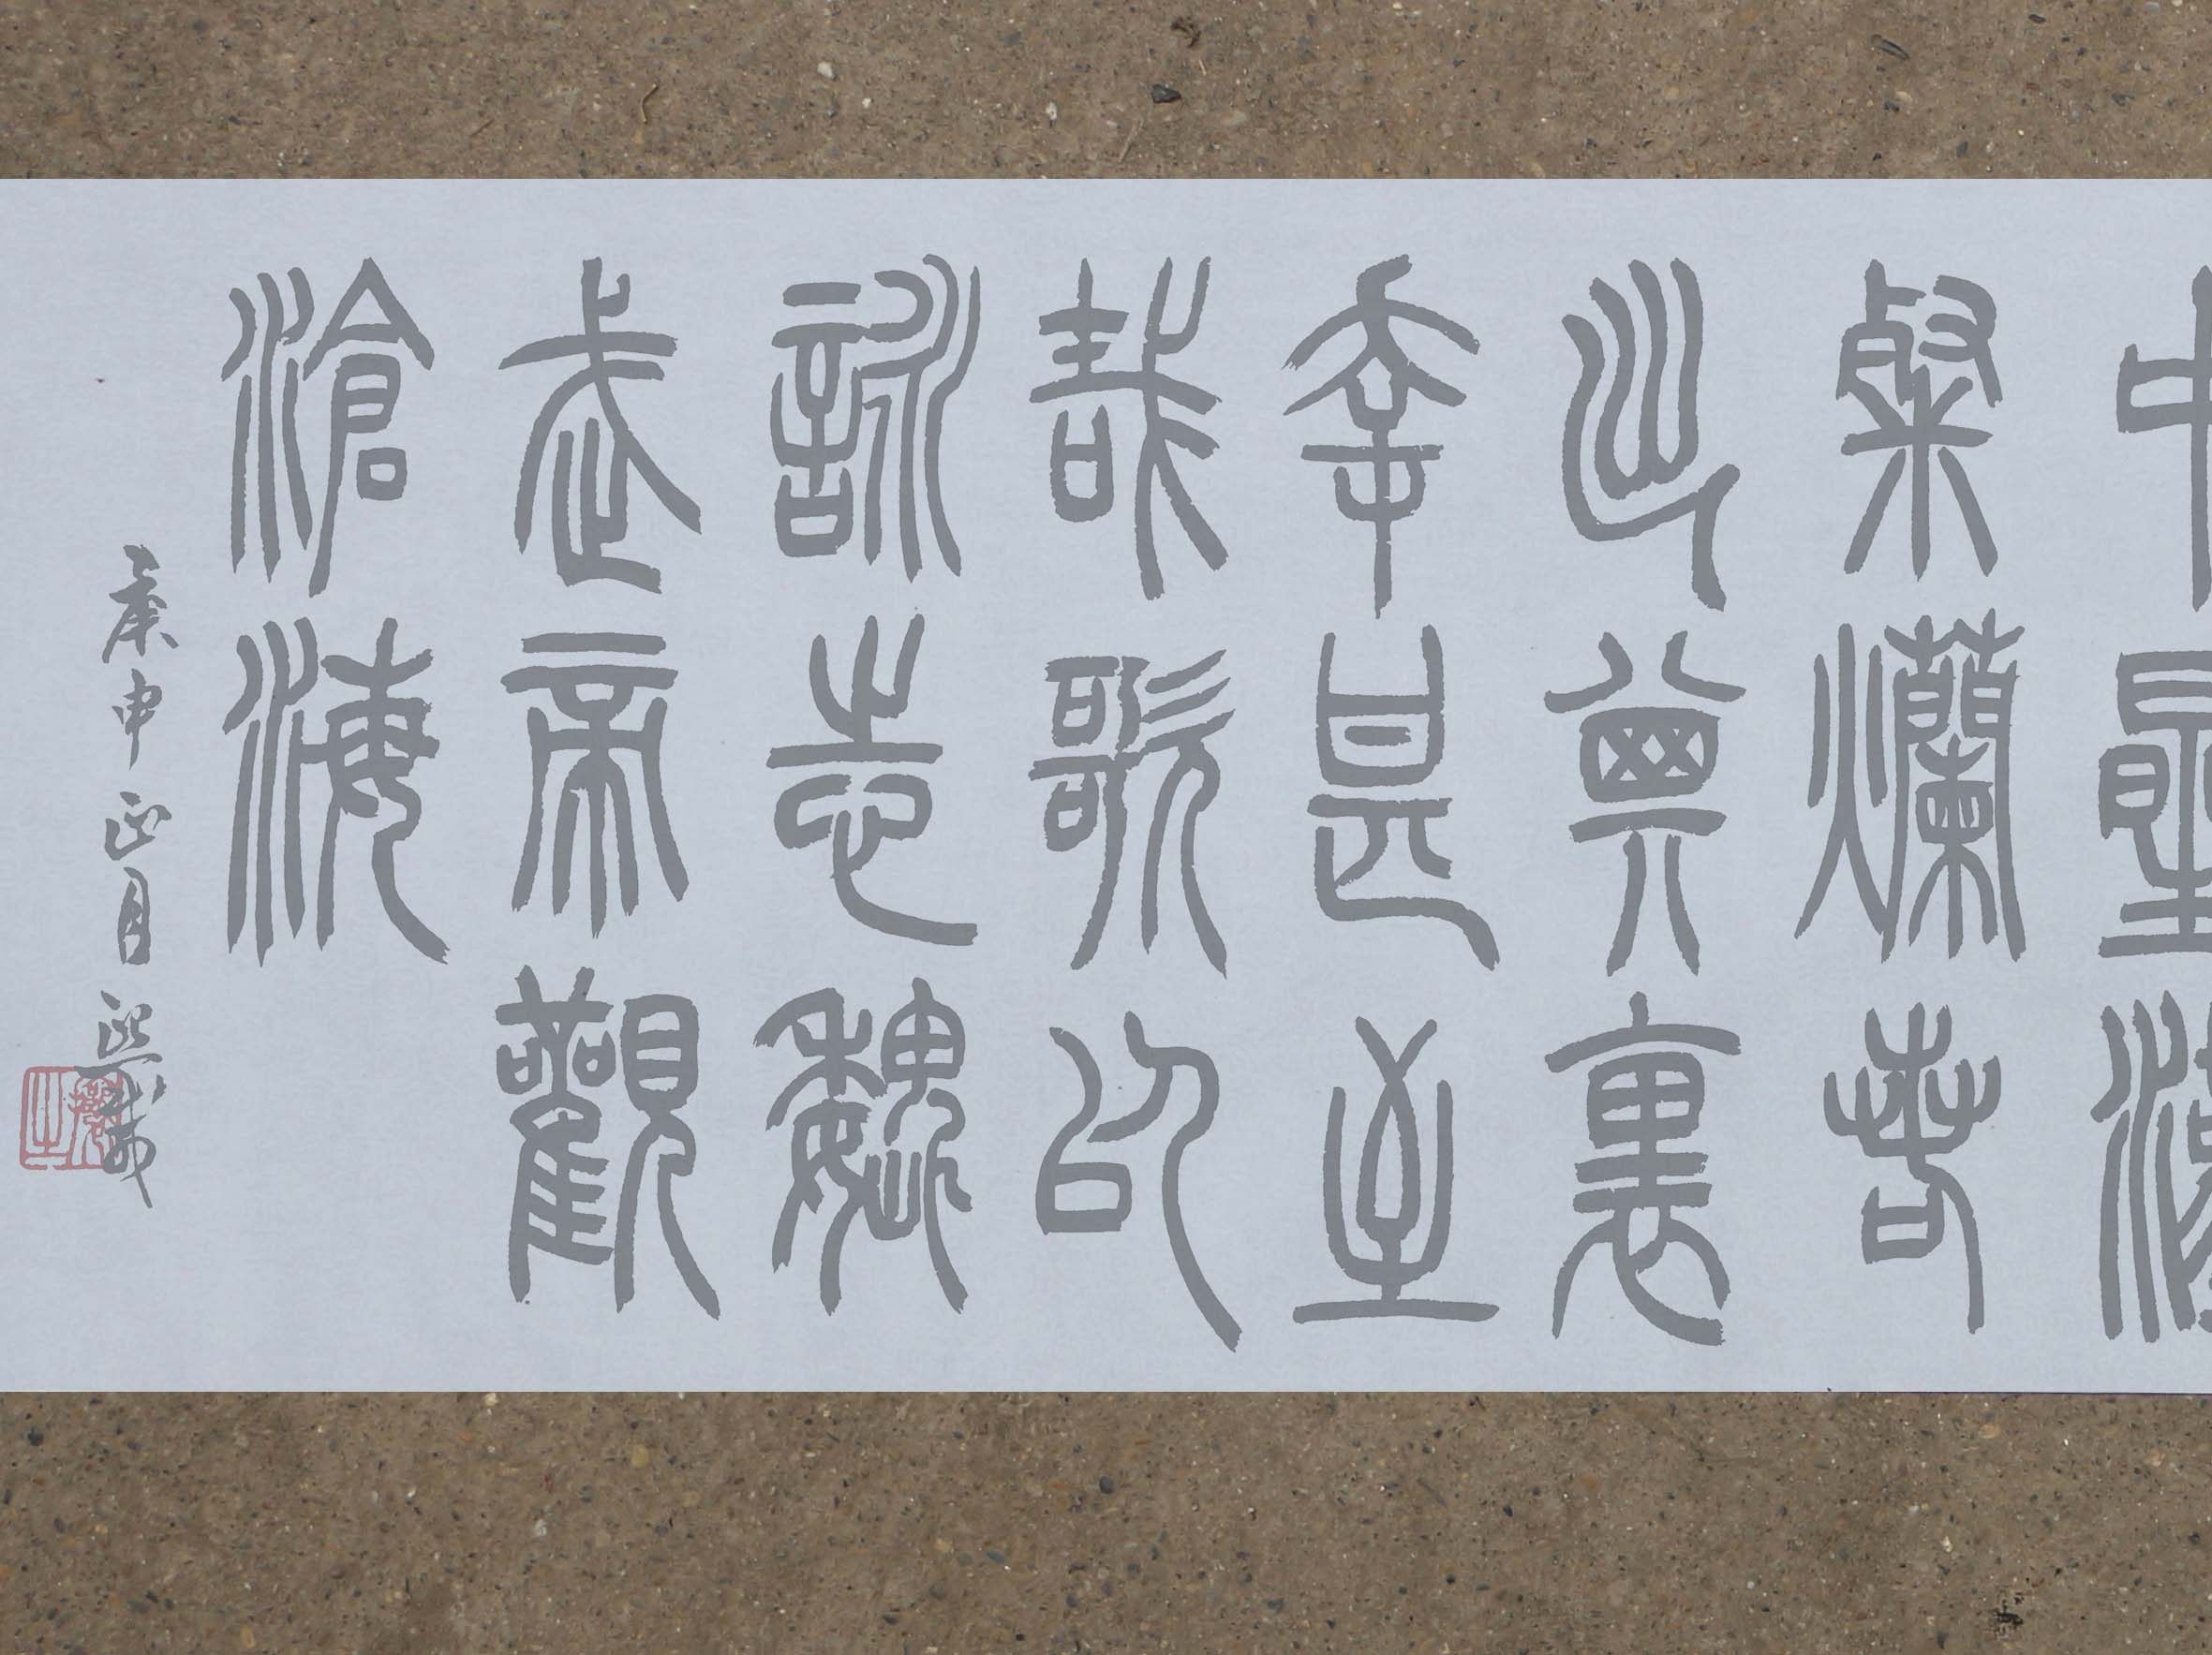 中星漢
粲爛若
出其裏
幸甚至
哉歌以
詠志魏
武帝觀
滄海
庚申正月熙載
攘之